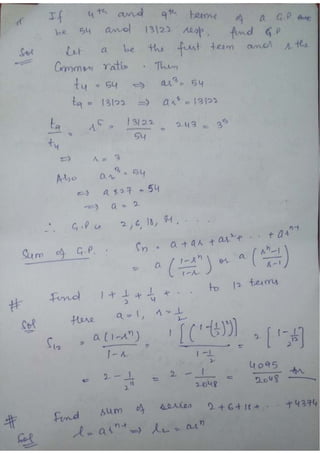 # If 4th and 9th terms of a G.P are
be 54 and 13122 resp. find G.P
Sol Let a be the first term and r the
Common ratio. Then
t4 = 54 ⇒ ar³ = 54
t9 = 13122 ⇒ ar⁸ = 13122
t9/t4 = r⁵ = 13122/54 = 243 = 3⁵
⇒ r = 3
Also ar³ = 54
⇒ a × 27 = 54
⇒ a = 2
∴ G.P is 2, 6, 18, 54, . . . .
Sum of G.P. Sn = a + ar + ar² + . . . + arⁿ⁻¹
= a (1-rⁿ / 1-r) or a (rⁿ-1 / r-1)
# Find 1 + 1/2 + 1/4 + . . . to 12 terms
Sol Here a = 1, r = 1/2
S12 = a(1-rⁿ)/1-r = 1[(1-(1/2)¹²)]/1-1/2 = 2[1-1/2¹²]
= 2 - 1/2¹¹ = 2 - 1/2048 = 4095/2048
# Find sum of series 2+6+18+ . . . +4374
Sol l = arⁿ⁻¹ ⇒ lr = arⁿ